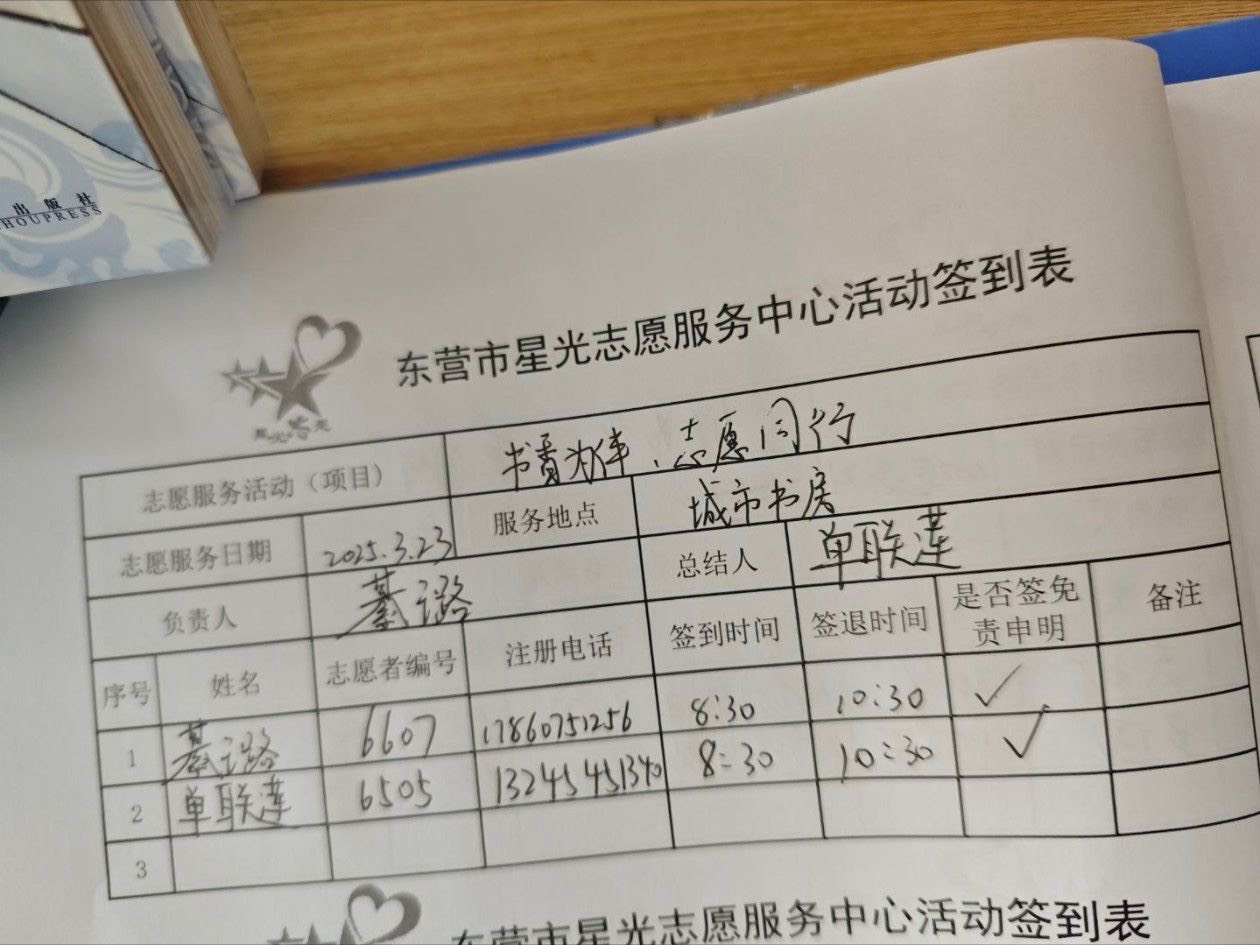 出版社
HOUPRESS
东营市星光志愿服务中心活动签到表
星光志愿
志愿服务活动（项目） 书香为伴、志愿同行
志愿服务日期 2025.3.23 服务地点 城市书房
负责人 綦璐 总结人 单联莲
序号 姓名 志愿者编号 注册电话 签到时间 签退时间 是否签免责申明 备注
1 綦璐 6607 17860751256 8:30 10:30 ✓
2 单联莲 6505 13245451340 8:30 10:30 ✓
3
东营市星光志愿服务中心活动签到表